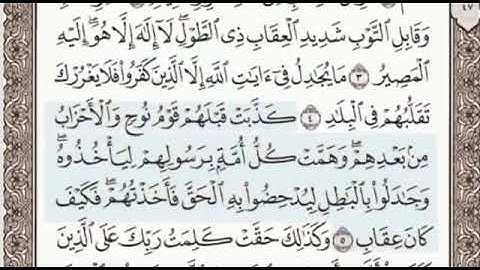 ٤٧
وَقَابِلِ ٱلتَّوْبِ شَدِيدِ ٱلْعِقَابِ ذِى ٱلطَّوْلِ ۖ لَآ إِلَٰهَ إِلَّا هُوَ ۖ إِلَيْهِ
ٱلْمَصِيرُ ٣ مَا يُجَٰدِلُ فِىٓ ءَايَٰتِ ٱللَّهِ إِلَّا ٱلَّذِينَ كَفَرُوا۟ فَلَا يَغْرُرْكَ
تَقَلُّبُهُمْ فِى ٱلْبِلَٰدِ ٤ كَذَّبَتْ قَبْلَهُمْ قَوْمُ نُوحٍ وَٱلْأَحْزَابُ
مِنۢ بَعْدِهِمْ ۖ وَهَمَّتْ كُلُّ أُمَّةٍۭ بِرَسُولِهِمْ لِيَأْخُذُوهُ ۖ
وَجَٰدَلُوا۟ بِٱلْبَٰطِلِ لِيُدْحِضُوا۟ بِهِ ٱلْحَقَّ فَأَخَذْتُهُمْ ۖ فَكَيْفَ
كَانَ عِقَابِ ٥ وَكَذَٰلِكَ حَقَّتْ كَلِمَتُ رَبِّكَ عَلَى ٱلَّذِينَ